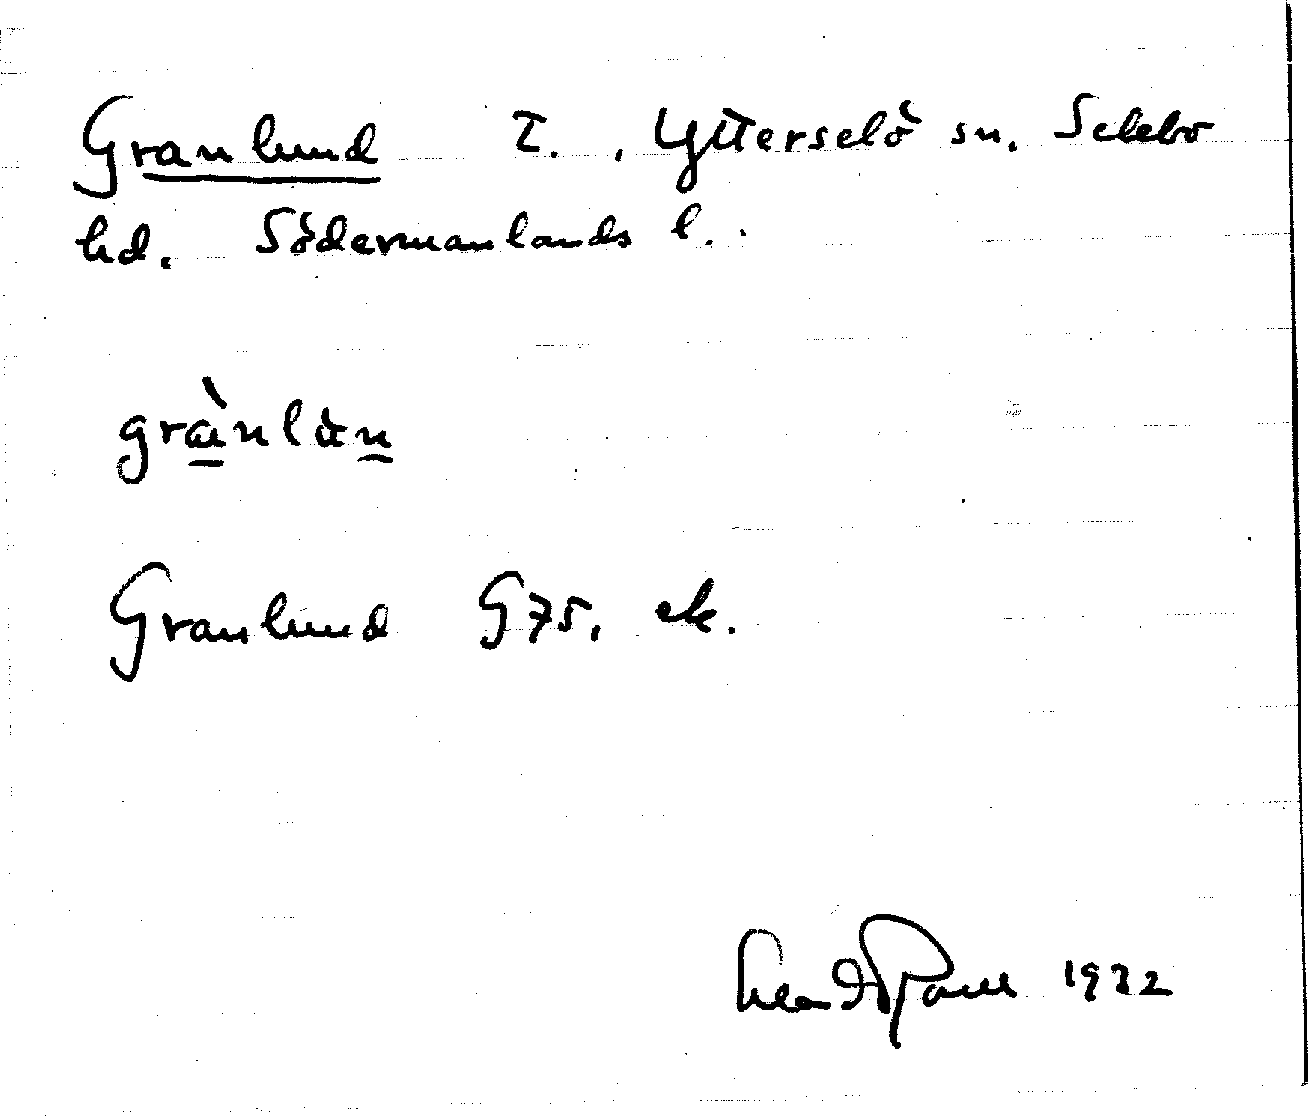 Granlund T., Ytterselö sn. Selebo
hd. Södermanlands l.
grànlàn
Granlund G75, ek.
1932